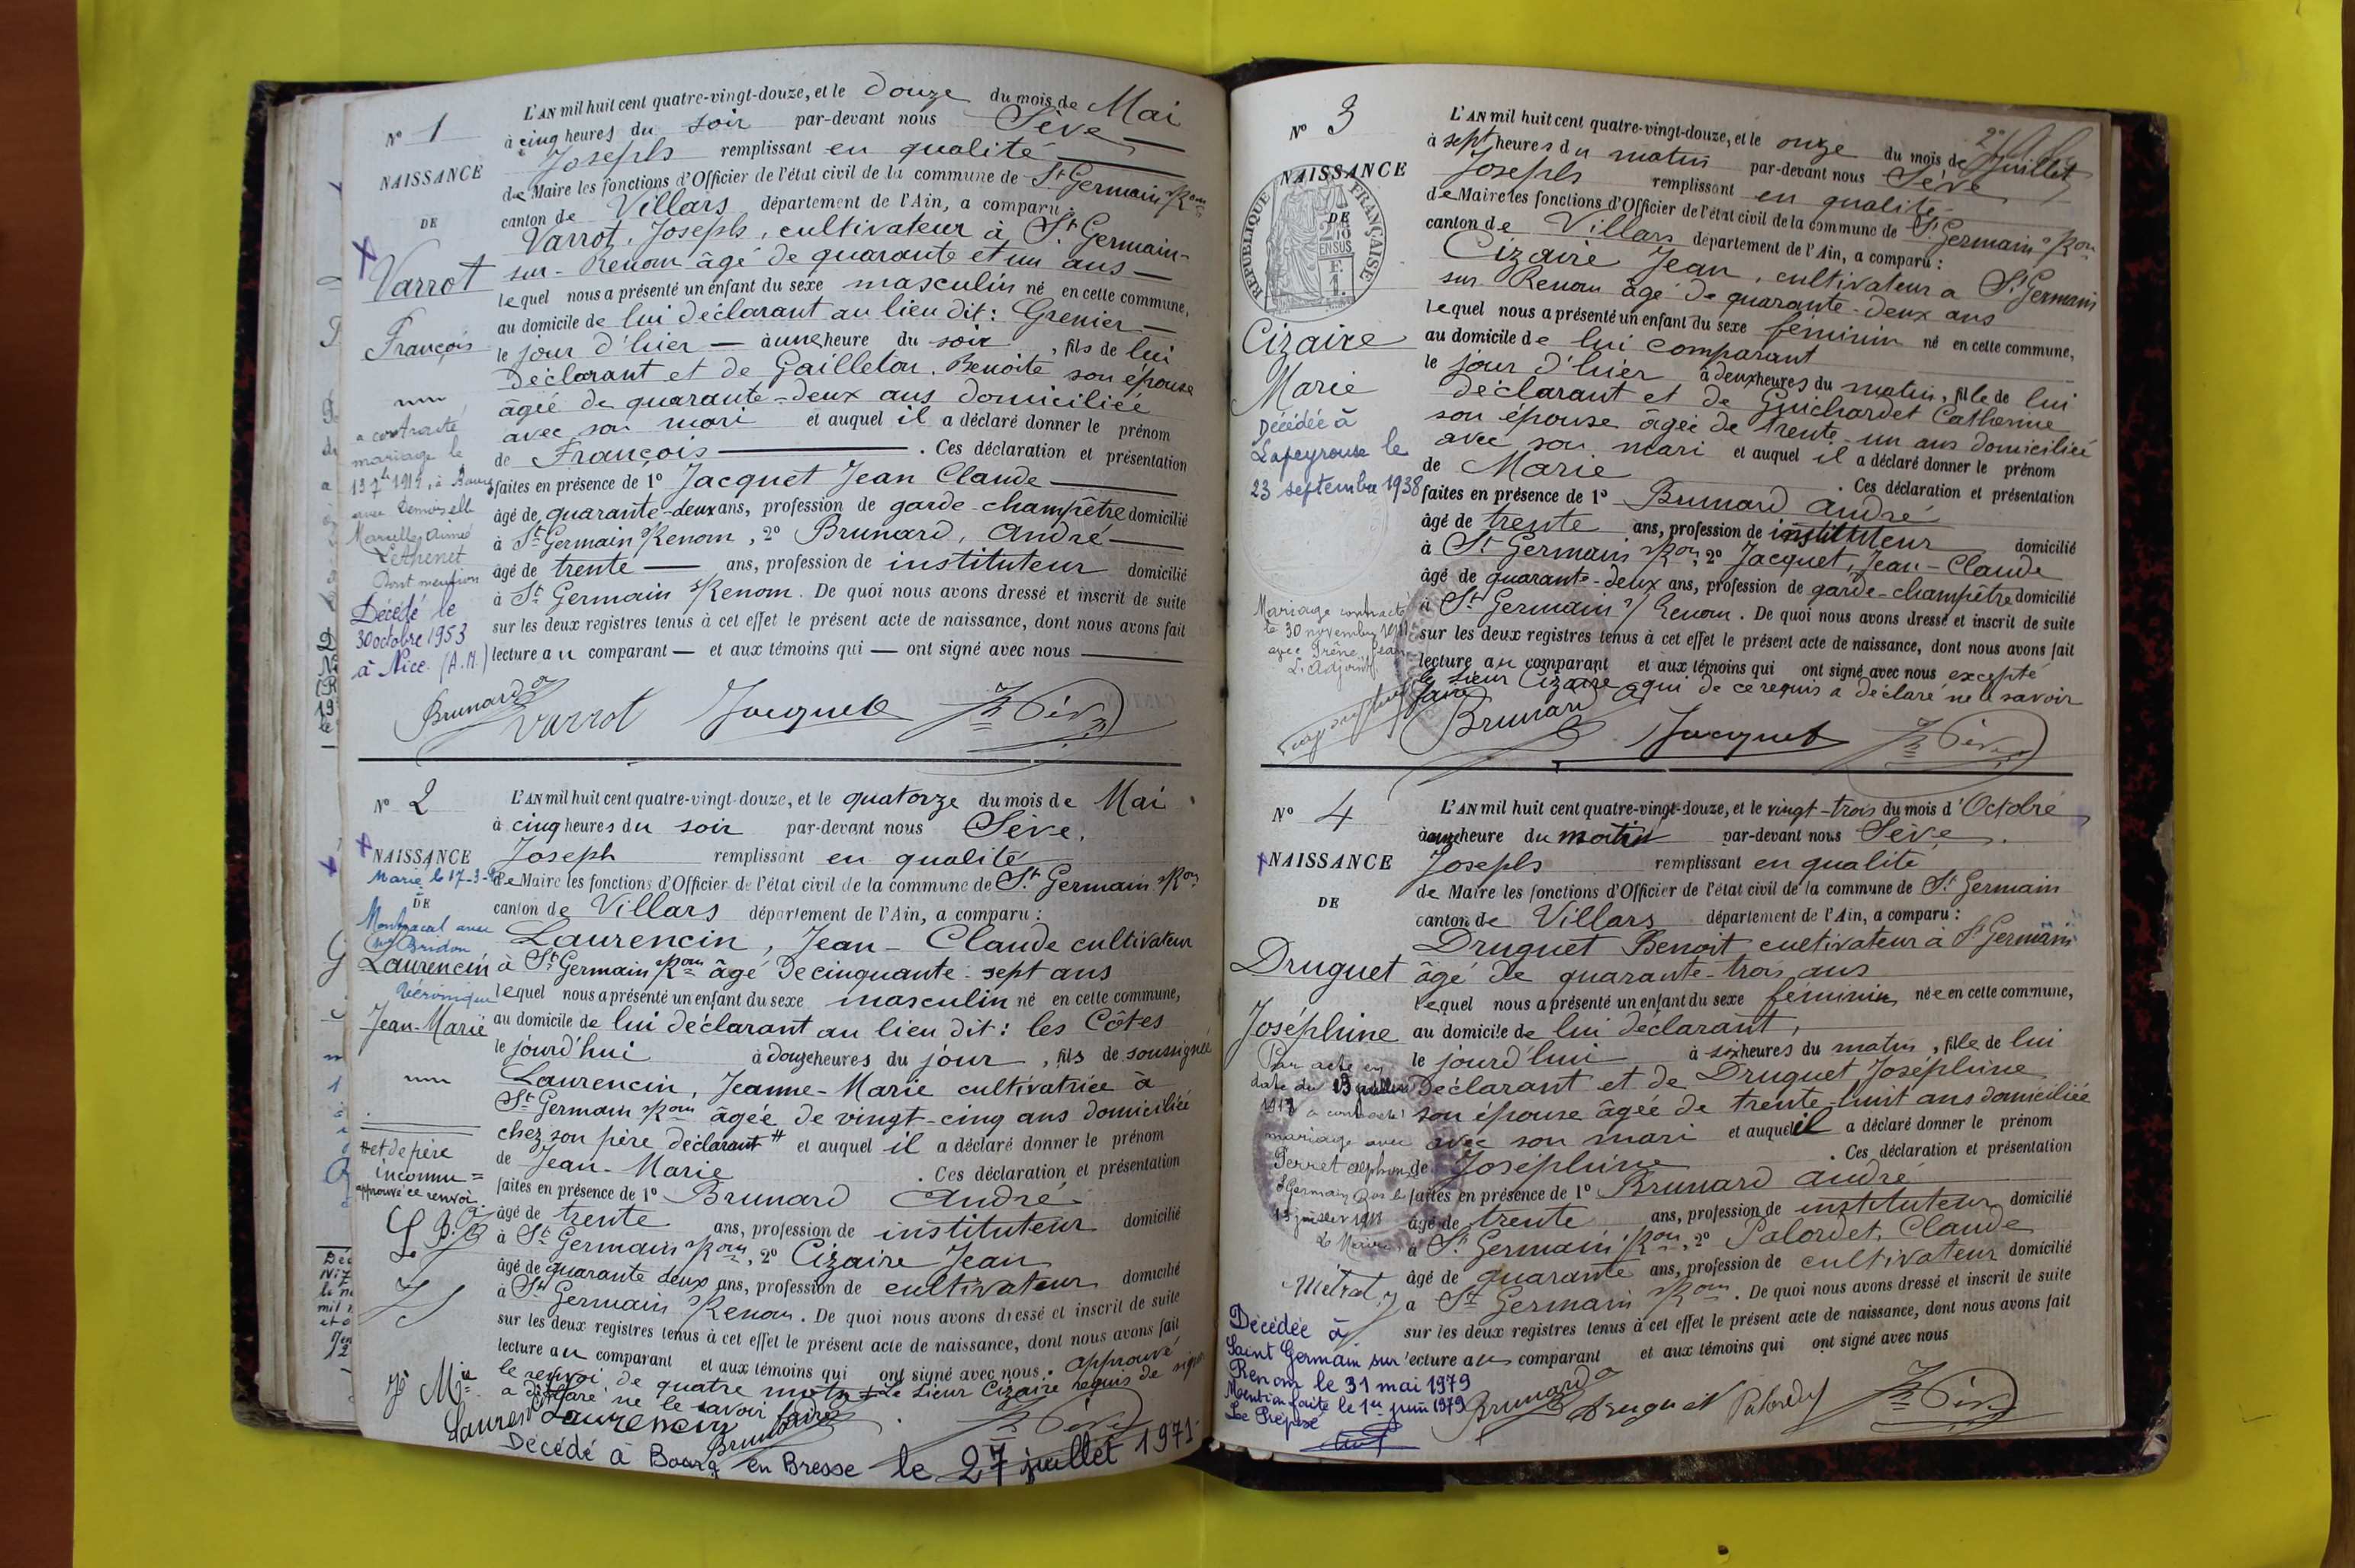 N° 1
NAISSANCE
DE
Varrot
François
a contracté
mariage le
1919, à Bourg
avec Demoiselle
Marcelle Aimée
Dont mention
Décédé le
30 octobre 1953
à Nice (A.M.)
L'AN mil huit cent quatre-vingt-douze, et le douze du mois de Mai
à cinq heures du soir par-devant nous Sève
Joseph remplissant en qualité
de Maire les fonctions d'Officier de l'état civil de la commune de St Germain s/Ron
canton de Villars département de l'Ain, a comparu :
Varrot, Joseph, cultivateur à St Germain-
sur-Renom âgé de quarante et un ans
lequel nous a présenté un enfant du sexe masculin né en cette commune,
au domicile de lui déclarant au lieu dit : Grenier
le jour d'hier à une heure du soir, fils de lui
déclarant et de Gailleton, Benoite son épouse
âgée de quarante-deux ans domiciliée
avec son mari et auquel il a déclaré donner le prénom
de François. Ces déclaration et présentation
faites en présence de 1° Jacquet Jean Claude
âgé de quarante-deux ans, profession de garde-champêtre domicilié
à St Germain s/Renom, 2° Brunard, André
âgé de trente ans, profession de instituteur domicilié
à St Germain s/Renom. De quoi nous avons dressé et inscrit de suite
sur les deux registres tenus à cet effet le présent acte de naissance, dont nous avons fait
lecture au comparant et aux témoins qui ont signé avec nous
Brunard Varrot Jacquet Jh Sève
N° 2
NAISSANCE
Marié le 17-3-
DE
Montracol avec
Bridon
Laurencin
Véronique
Jean-Marie
# et de père
inconnu =
approuvé ce renvoi
L'AN mil huit cent quatre-vingt-douze, et le quatorze du mois de Mai
à cinq heures du soir par-devant nous Sève,
Joseph remplissant en qualité
de Maire les fonctions d'Officier de l'état civil de la commune de St Germain s/Ron
canton de Villars département de l'Ain, a comparu :
Laurencin, Jean-Claude cultivateur
à St Germain s/Ron âgé de cinquante-sept ans
lequel nous a présenté un enfant du sexe masculin né en cette commune,
au domicile de lui déclarant au lieu dit : les Côtes
le jourd'hui à douze heures du jour, fils de soussignée
Laurencin, Jeanne-Marie cultivatrice à
St Germain s/Ron âgée de vingt-cinq ans domiciliée
chez son père déclarant # et auquel il a déclaré donner le prénom
de Jean-Marie. Ces déclaration et présentation
faites en présence de 1° Brunard André
âgé de trente ans, profession de instituteur domicilié
à St Germain s/Ron, 2° Cizaire Jean
âgé de quarante deux ans, profession de cultivateur domicilié
à St Germain s/Renom. De quoi nous avons dressé et inscrit de suite
sur les deux registres tenus à cet effet le présent acte de naissance, dont nous avons fait
lecture au comparant et aux témoins qui ont signé avec nous. approuvé
le renvoi de quatre mots Le sieur Cizaire requis de signer
a déclaré ne le savoir faire
Laurencin Laurencin Brunard Jh Sève
Décédé à Bourg en Bresse le 27 juillet 1971
N° 3
NAISSANCE
DE
RÉPUBLIQUE FRANÇAISE
Cizaire
Marie
Décédée à
Lapeyrouse le
23 septembre 1938
Mariage contracté
le 30 novembre
avec Jean
L'adjoint
L'AN mil huit cent quatre-vingt-douze, et le onze du mois de Juillet
à sept heures du matin par-devant nous Sève
Joseph remplissant en qualité
de Maire les fonctions d'Officier de l'état civil de la commune de St Germain s/Ron
canton de Villars département de l'Ain, a comparu :
Cizaire Jean, cultivateur à St Germain
sur Renom âgé de quarante-deux ans
lequel nous a présenté un enfant du sexe féminin né en cette commune,
au domicile de lui comparant
le jour d'hier à deux heures du matin, fille de lui
déclarant et de Guichardet Catherine
son épouse âgée de trente-un ans domiciliée
avec son mari et auquel il a déclaré donner le prénom
de Marie. Ces déclaration et présentation
faites en présence de 1° Brunard André
âgé de trente ans, profession de instituteur domicilié
à St Germain s/Ron, 2° Jacquet, Jean-Claude
âgé de quarante-deux ans, profession de garde-champêtre domicilié
à St Germain s/Renom. De quoi nous avons dressé et inscrit de suite
sur les deux registres tenus à cet effet le présent acte de naissance, dont nous avons fait
lecture au comparant et aux témoins qui ont signé avec nous excepté
le sieur Cizaire qui de ce requis a déclaré ne le savoir
faire
Brunard Jacquet Jh Sève
N° 4
NAISSANCE
DE
Druguet
Joséphine
Par acte en
date du 19 juillet
1913 a contracté
mariage avec
Perret Alphonse
St Germain s/Ron le
Le Maire
Métrat
Décédée à
Saint Germain sur
Renom le 31 mai 1979
Mention faite le 1er juin 1979
Le Préposé
L'AN mil huit cent quatre-vingt-douze, et le vingt-trois du mois d'Octobre
à onze heure du matin par-devant nous Sève
Joseph remplissant en qualité
de Maire les fonctions d'Officier de l'état civil de la commune de St Germain
canton de Villars département de l'Ain, a comparu :
Druguet Benoit cultivateur à St Germain
âgé de quarante-trois ans
lequel nous a présenté un enfant du sexe féminin née en cette commune,
au domicile de lui déclarant,
le jourd'hui à six heures du matin, fille de lui
déclarant et de Druguet Joséphine
son épouse âgée de trente-huit ans domiciliée
avec son mari et auquel il a déclaré donner le prénom
de Joséphine. Ces déclaration et présentation
faites en présence de 1° Brunard André
âgé de trente ans, profession de instituteur domicilié
à St Germain s/Ron, 2° Palordet, Claude
âgé de quarante ans, profession de cultivateur domicilié
à St Germain s/Ron. De quoi nous avons dressé et inscrit de suite
sur les deux registres tenus à cet effet le présent acte de naissance, dont nous avons fait
lecture au comparant et aux témoins qui ont signé avec nous
Brunard Druguet Palordet Jh Sève